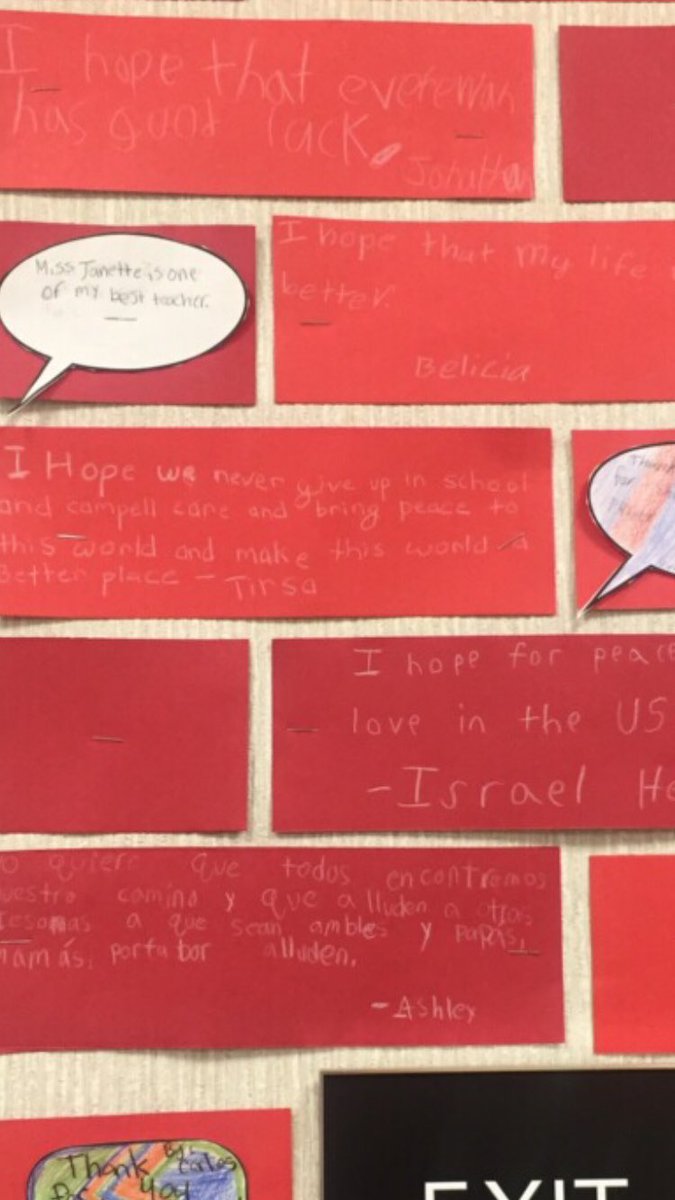 I hope that everewan
has gund lack.
Jonathan
Miss Janette is one
of my best teacher.
I hope that my life
better.
Belicia
I Hope we never give up in school
and campell care and bring peace to
this world and make this world a
Better place - Tirsa
Thank
for
I hope for peace
love in the US
-Israel He
o quiere que todos encontremos
uestro camino y que alluden a otras
esonas a que sean ambles y papás,
mamás, portabor alluden.
-Ashley
Thank
By: Carlos
You
EXIT